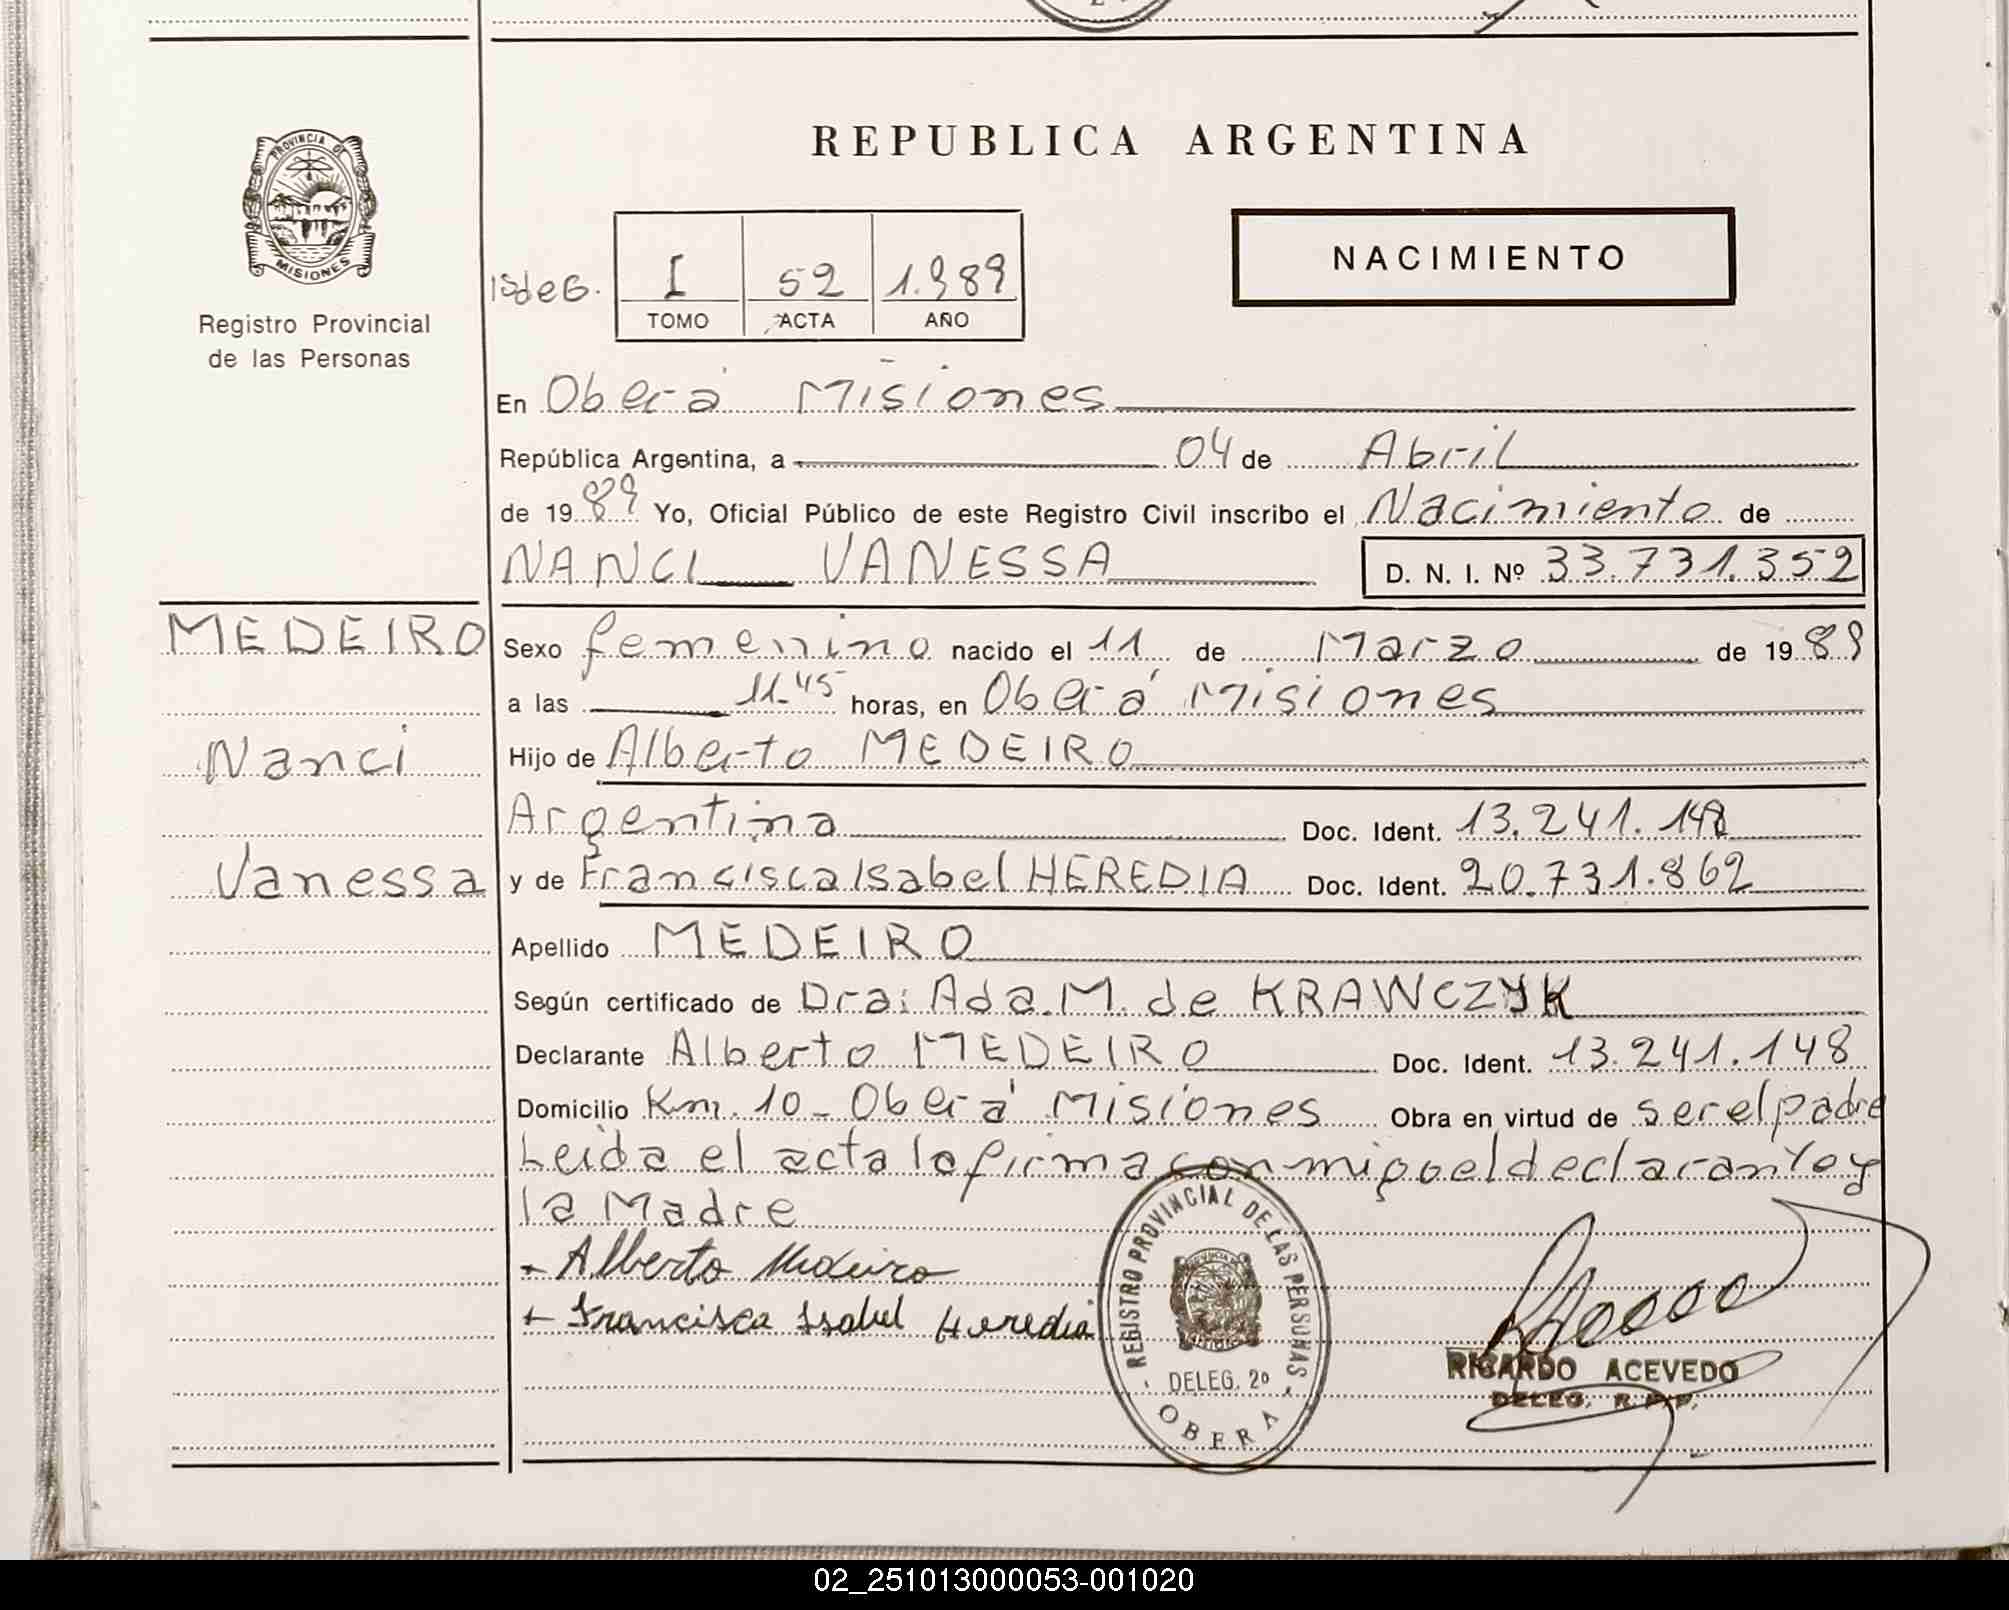 REPUBLICA ARGENTINA
PROVINCIA DE
MISIONES
Registro Provincial
de las Personas
NACIMIENTO
I 52 1.989
TOMO ACTA AÑO
En Oberá Misiones
República Argentina, a 04 de Abril
de 1989 Yo, Oficial Público de este Registro Civil inscribo el Nacimiento de
NANCI VANESSA D. N. I. Nº 33.731.352
MEDEIRO
Nanci
Vanessa
Sexo femenino nacido el 11 de Marzo de 1989
a las 11.45 horas, en Oberá Misiones
Hijo de Alberto MEDEIRO
Argentina Doc. Ident. 13.241.148
y de Francisca Isabel HEREDIA Doc. Ident. 20.731.862
Apellido MEDEIRO
Según certificado de Dra: Ada.M. de KRAWCZYK
Declarante Alberto MEDEIRO Doc. Ident. 13.241.148
Domicilio Km. 10 - Oberá Misiones Obra en virtud de ser el padre
Leida el acta la firma conmigo el declarante y
la Madre
Alberto Medeiro
Francisca Isabel Heredia
REGISTRO PROVINCIAL DE LAS PERSONAS
DELEG. 2º
OBERA
RICARDO ACEVEDO
DELEG. R.P.P.
02_251013000053-001020